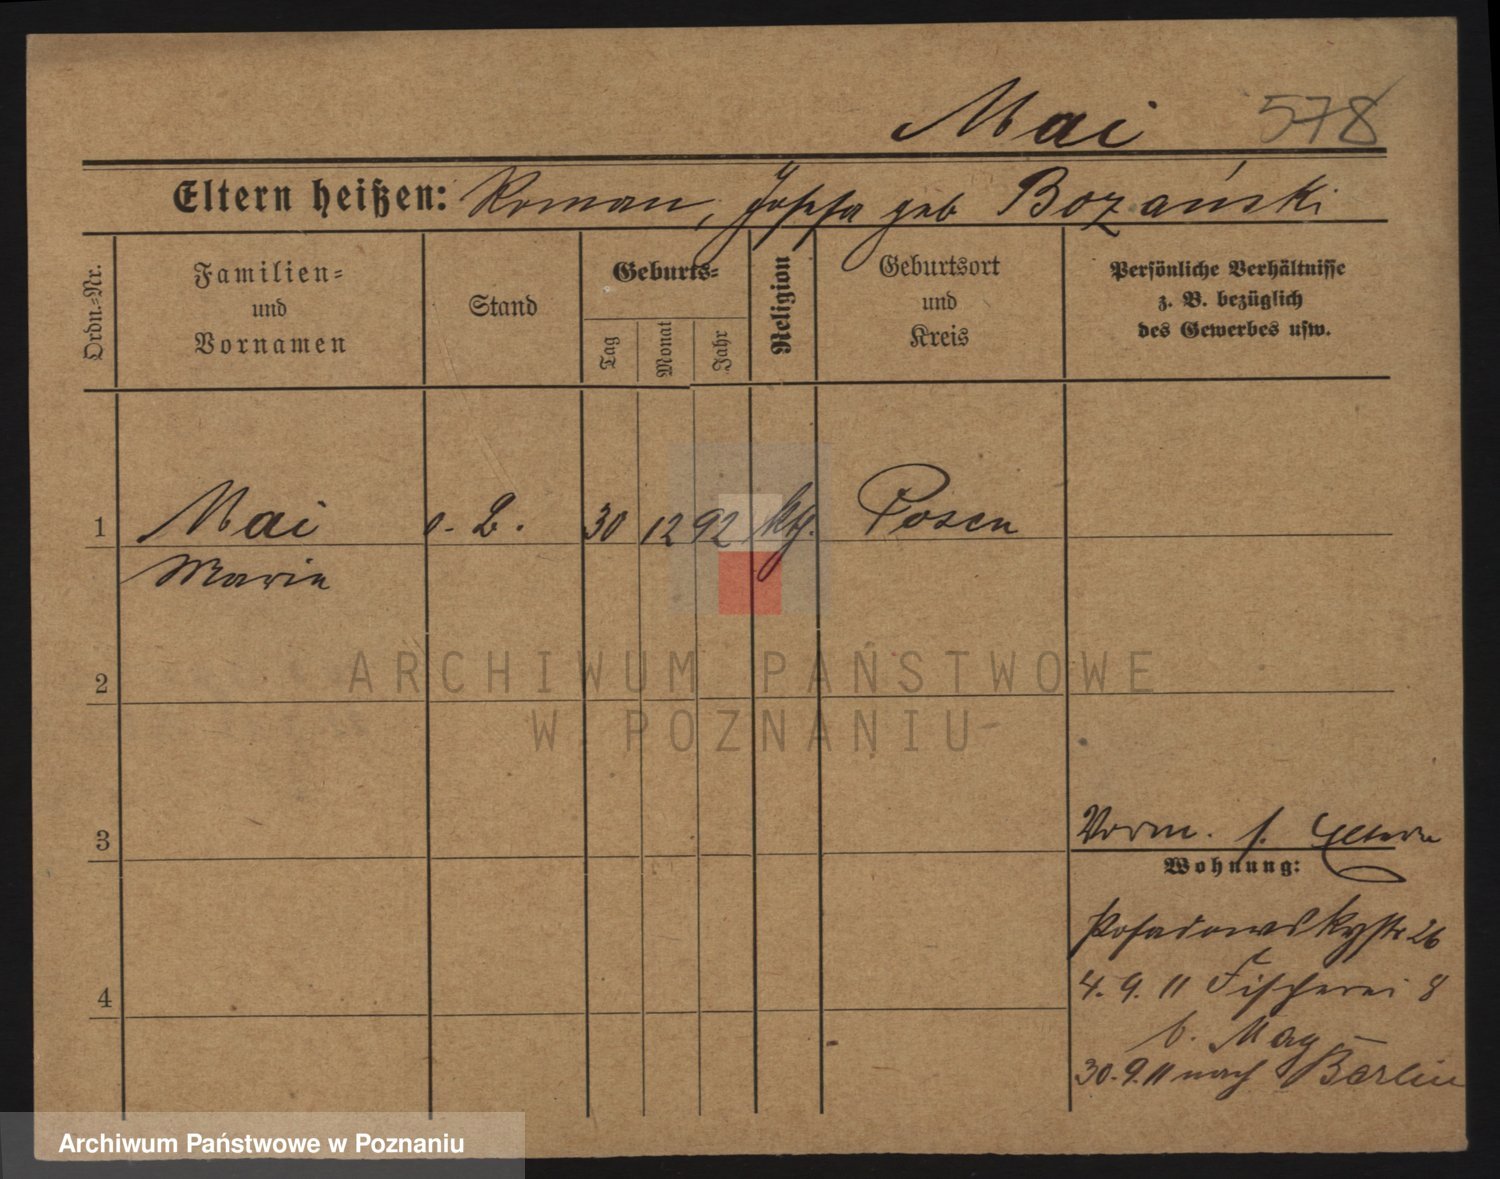 Mai 578
Eltern heißen: Roman, Josefa geb Bozański
Ordn.-Nr.
Familien-
und
Vornamen
Stand
Geburts-
Tag
Monat
Jahr
Religion
Geburtsort
und
Kreis
Persönliche Verhältnisse
z. B. bezüglich
des Gewerbes usw.
1 Mai o. B. 30 12 92 kth. Posen
Marie
2
3
Vorm. s. Eltern
Wohnung:
Posadowskystr 26
4. 9. 11 Fischerei 8
4
b. May
30. 9. 11 nach Berlin
ARCHIWUM PAŃSTWOWE
W POZNANIU
Archiwum Państwowe w Poznaniu